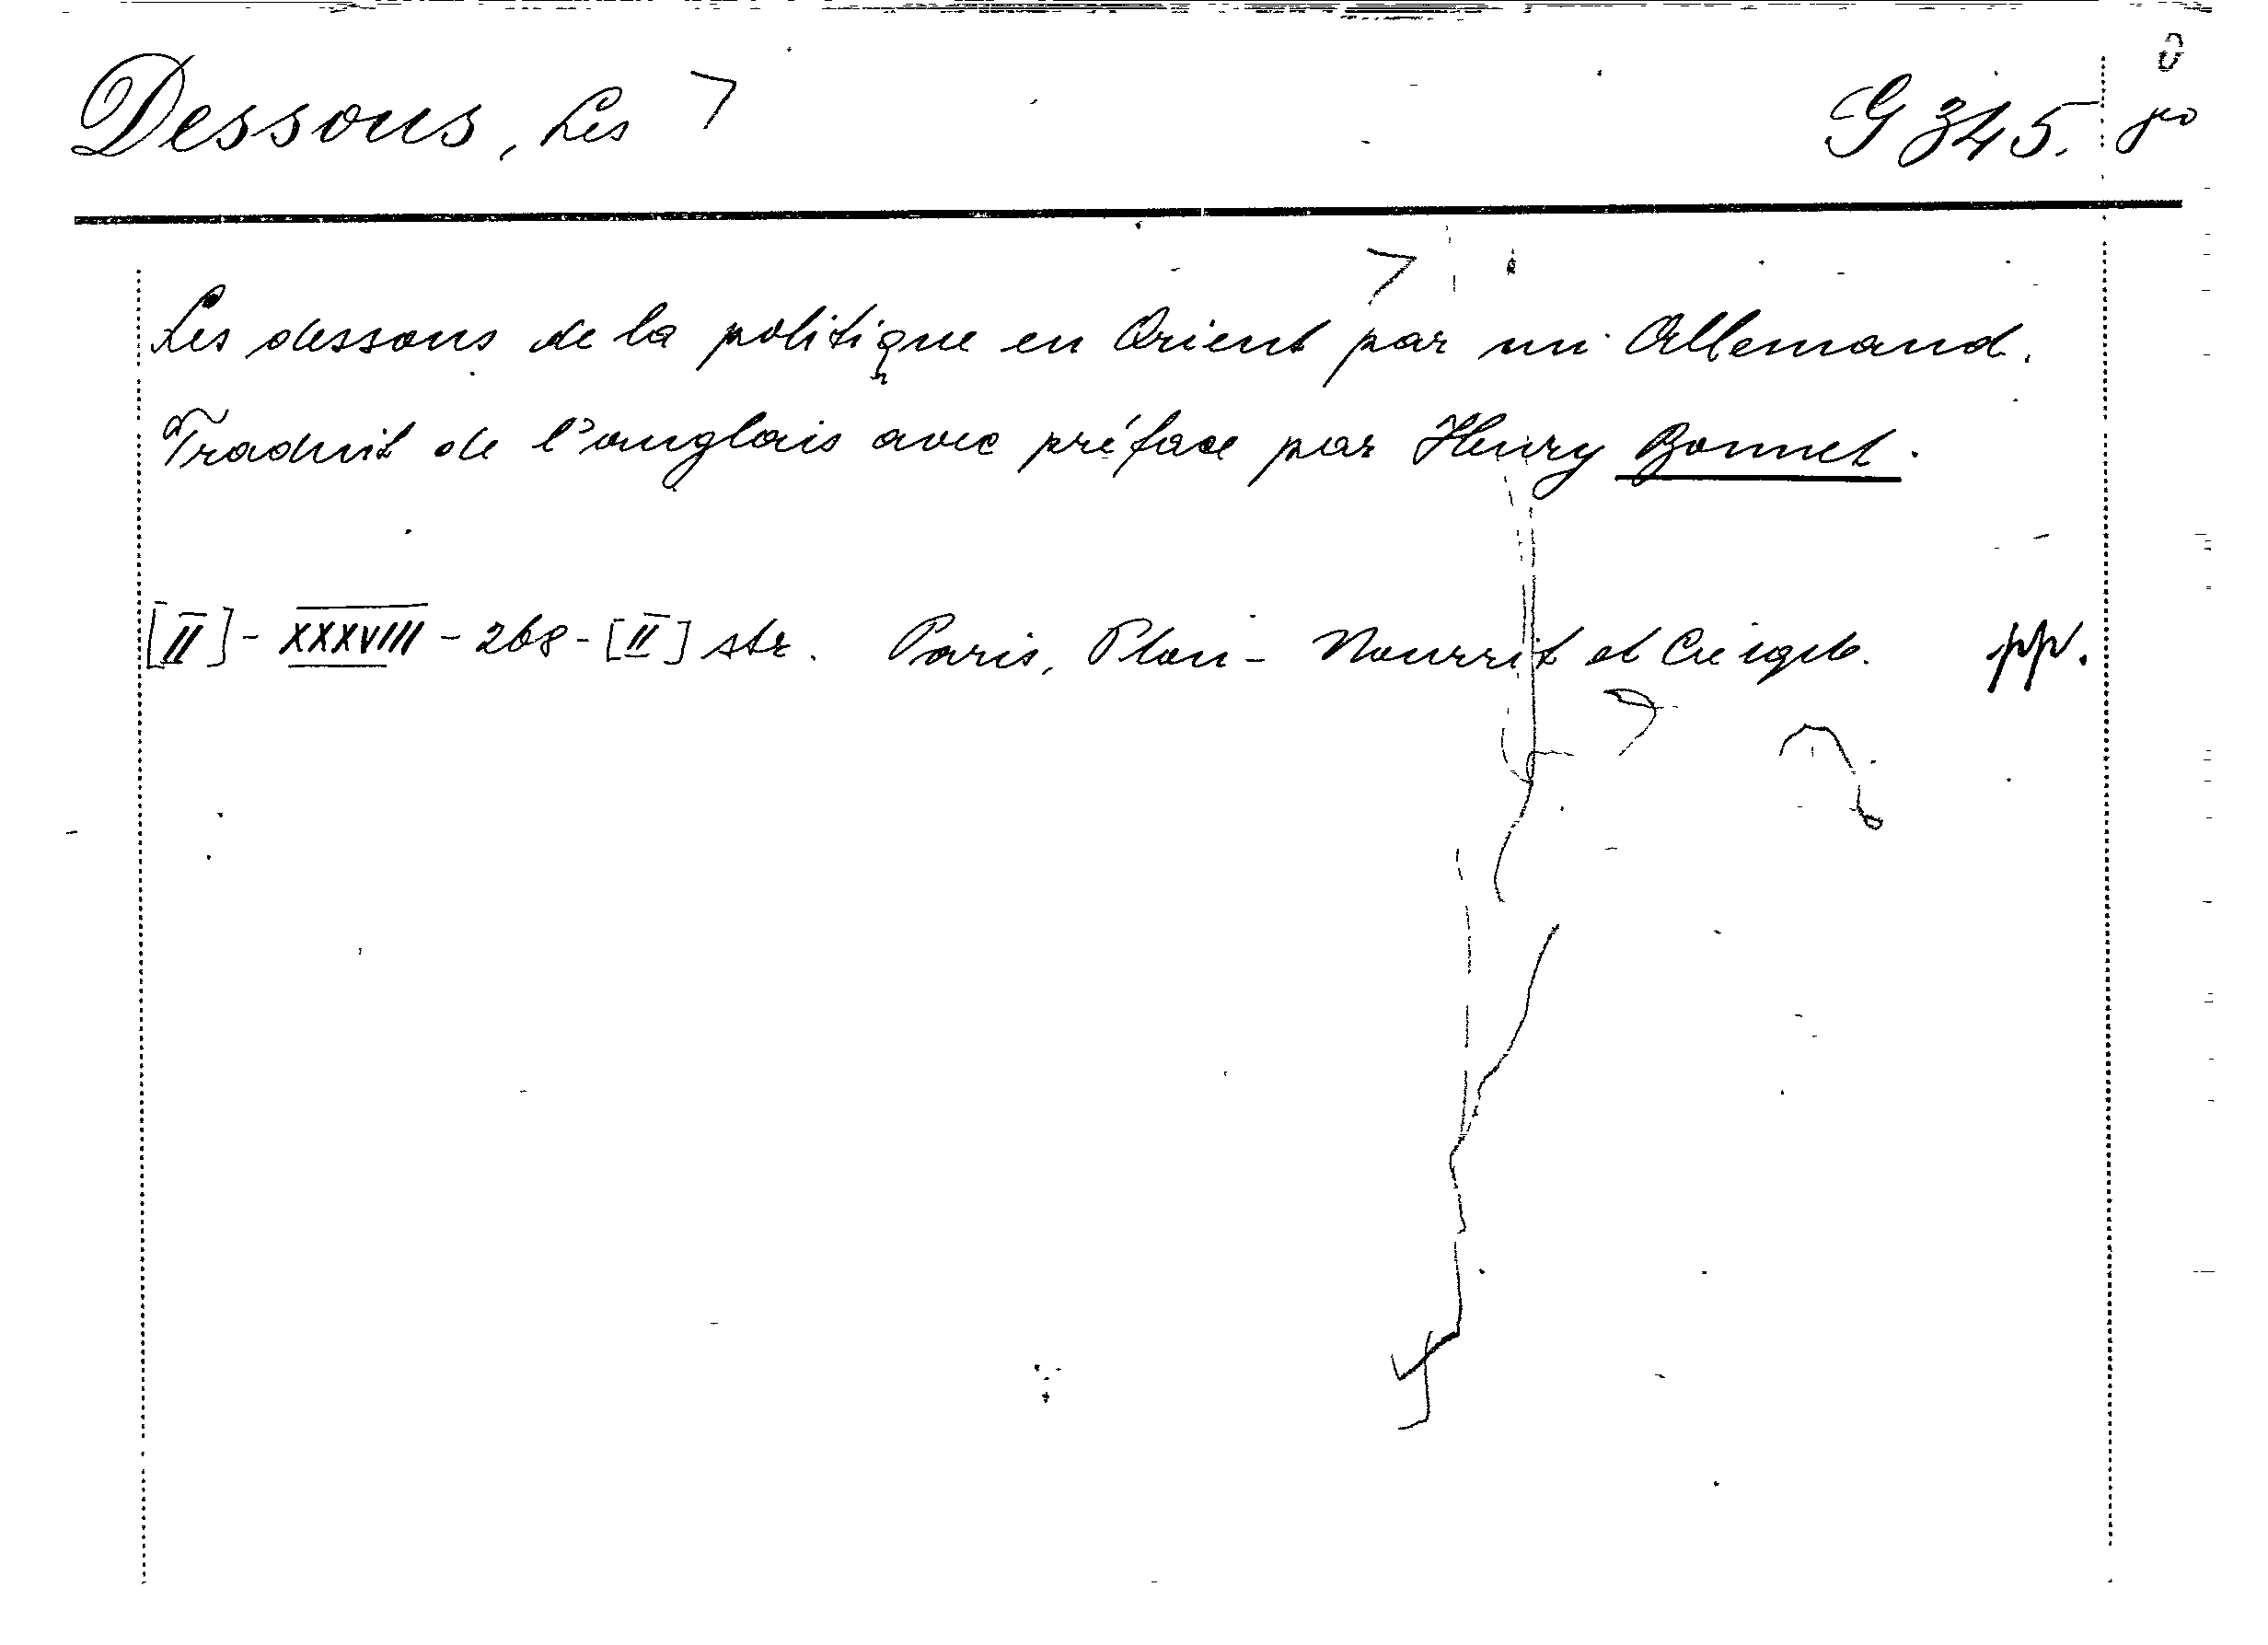 Dessous, Les G 345.
Les dessous de la politique en Orient par un Allemand.
Traduit de l'anglais avec préface par Henry Bonnet.
[II] - XXXVIII - 268 - [II] str. Paris, Plon - Nourrit et Cie pp.